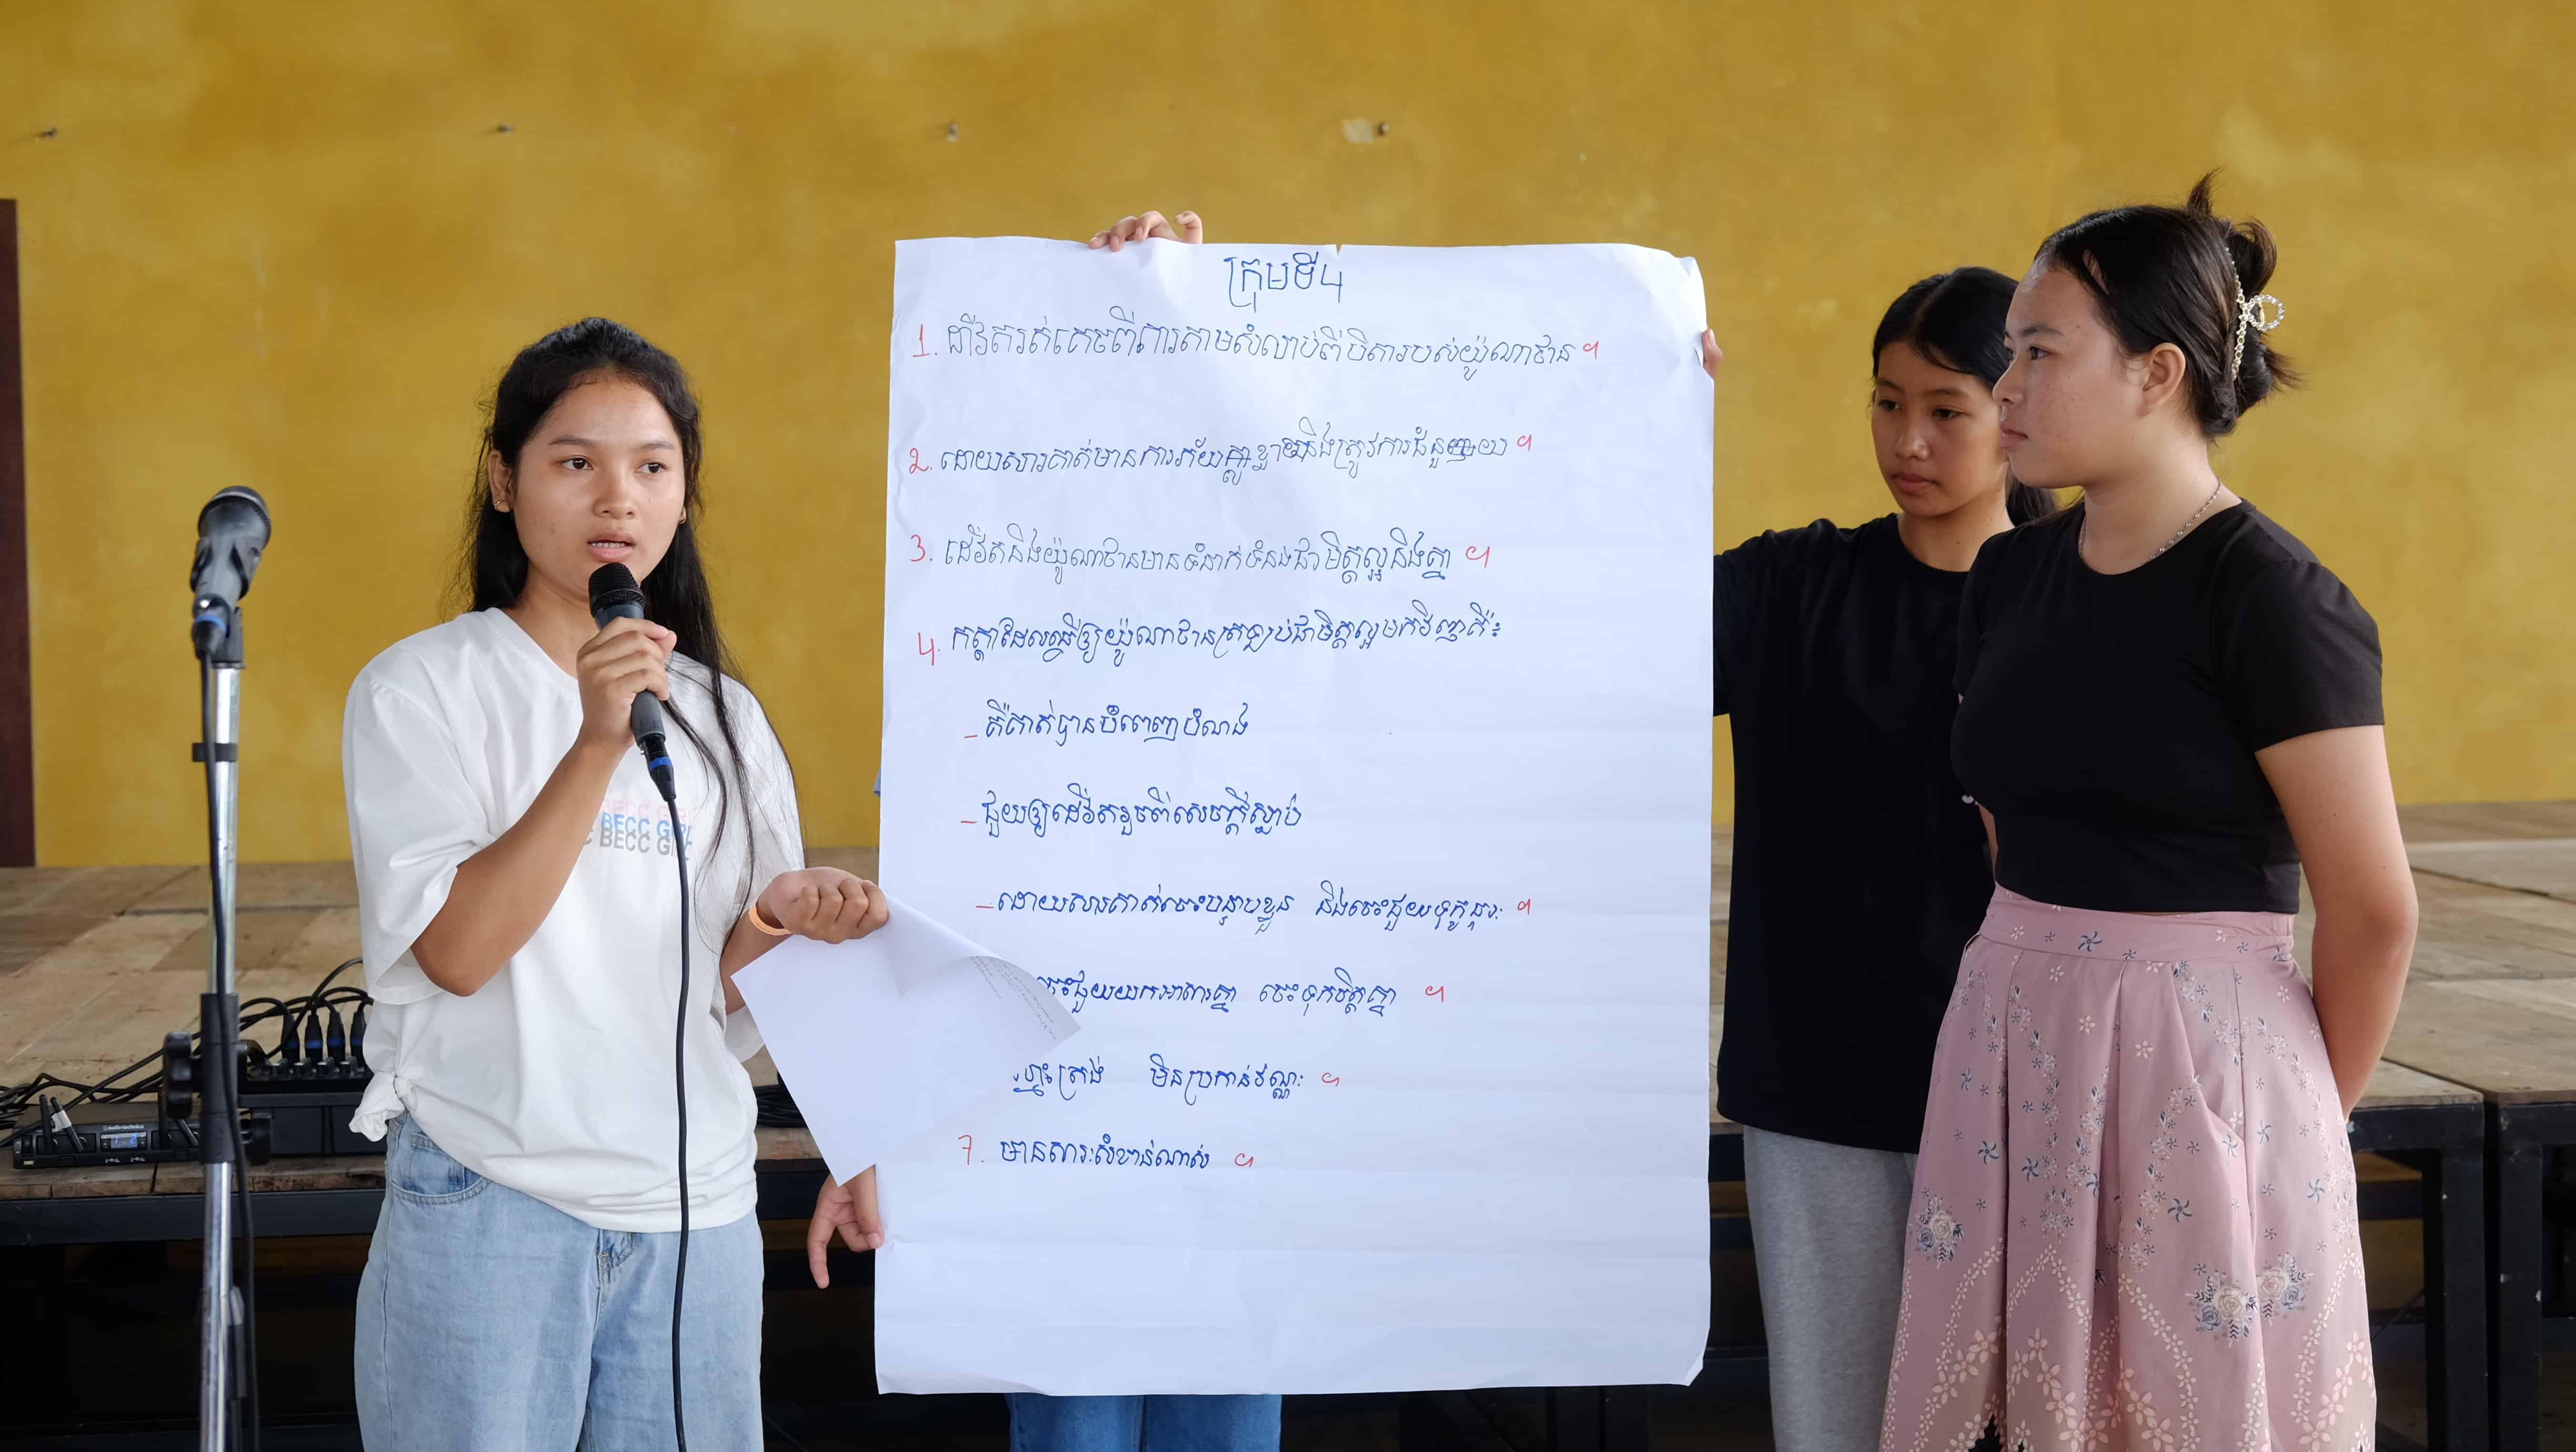 ក្រុមទី៤
1. ដាវីតរត់គេចពីការតាមសំលាប់ពីបិតារបស់យ៉ូណាថាន ។
2. ដោយសារគាត់មានការភ័យខ្លាចនិងត្រូវការជំនួយ ។
3. ដេវីតនិងយ៉ូណាថានមានទំនាក់ទំនងជាមិត្តល្អនិងគ្នា ។
4. កត្តាដែលធ្វើឲ្យយ៉ូណាថានត្រឡប់ជាមិត្តល្អមកវិញគឺ៖
_ គឺគាត់បានបំពេញបំណង
_ ជួយឲ្យដេវីតរួចពីសេចក្តីស្លាប់
_ ដោយសារគាត់ចេះបន្ទាបខ្លួន និងចេះជួយទុក្ខធុរៈ ។
ចេះជួយយកអាសារគ្នា ចេះទុកចិត្តគ្នា ។
ស្មោះត្រង់ មិនប្រកាន់វណ្ណៈ ។
7. មានសារៈសំខាន់ណាស់ ។
BECC GIRL
BECC GI
audio-technica